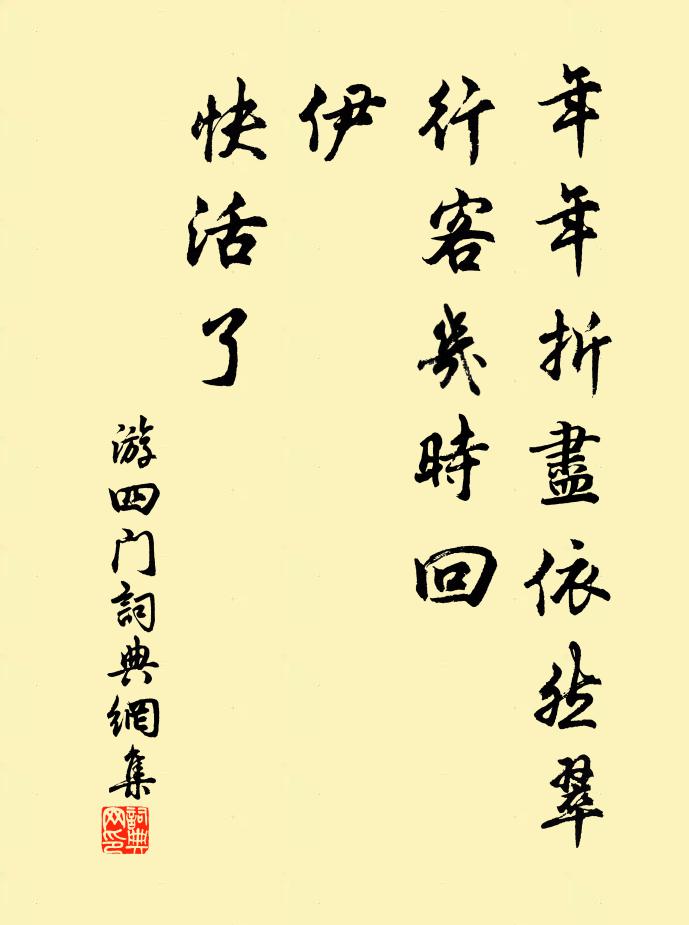 年年折盡依然翠
行客幾時回
伊
快活了
游四门詞典網集
詞典
网印